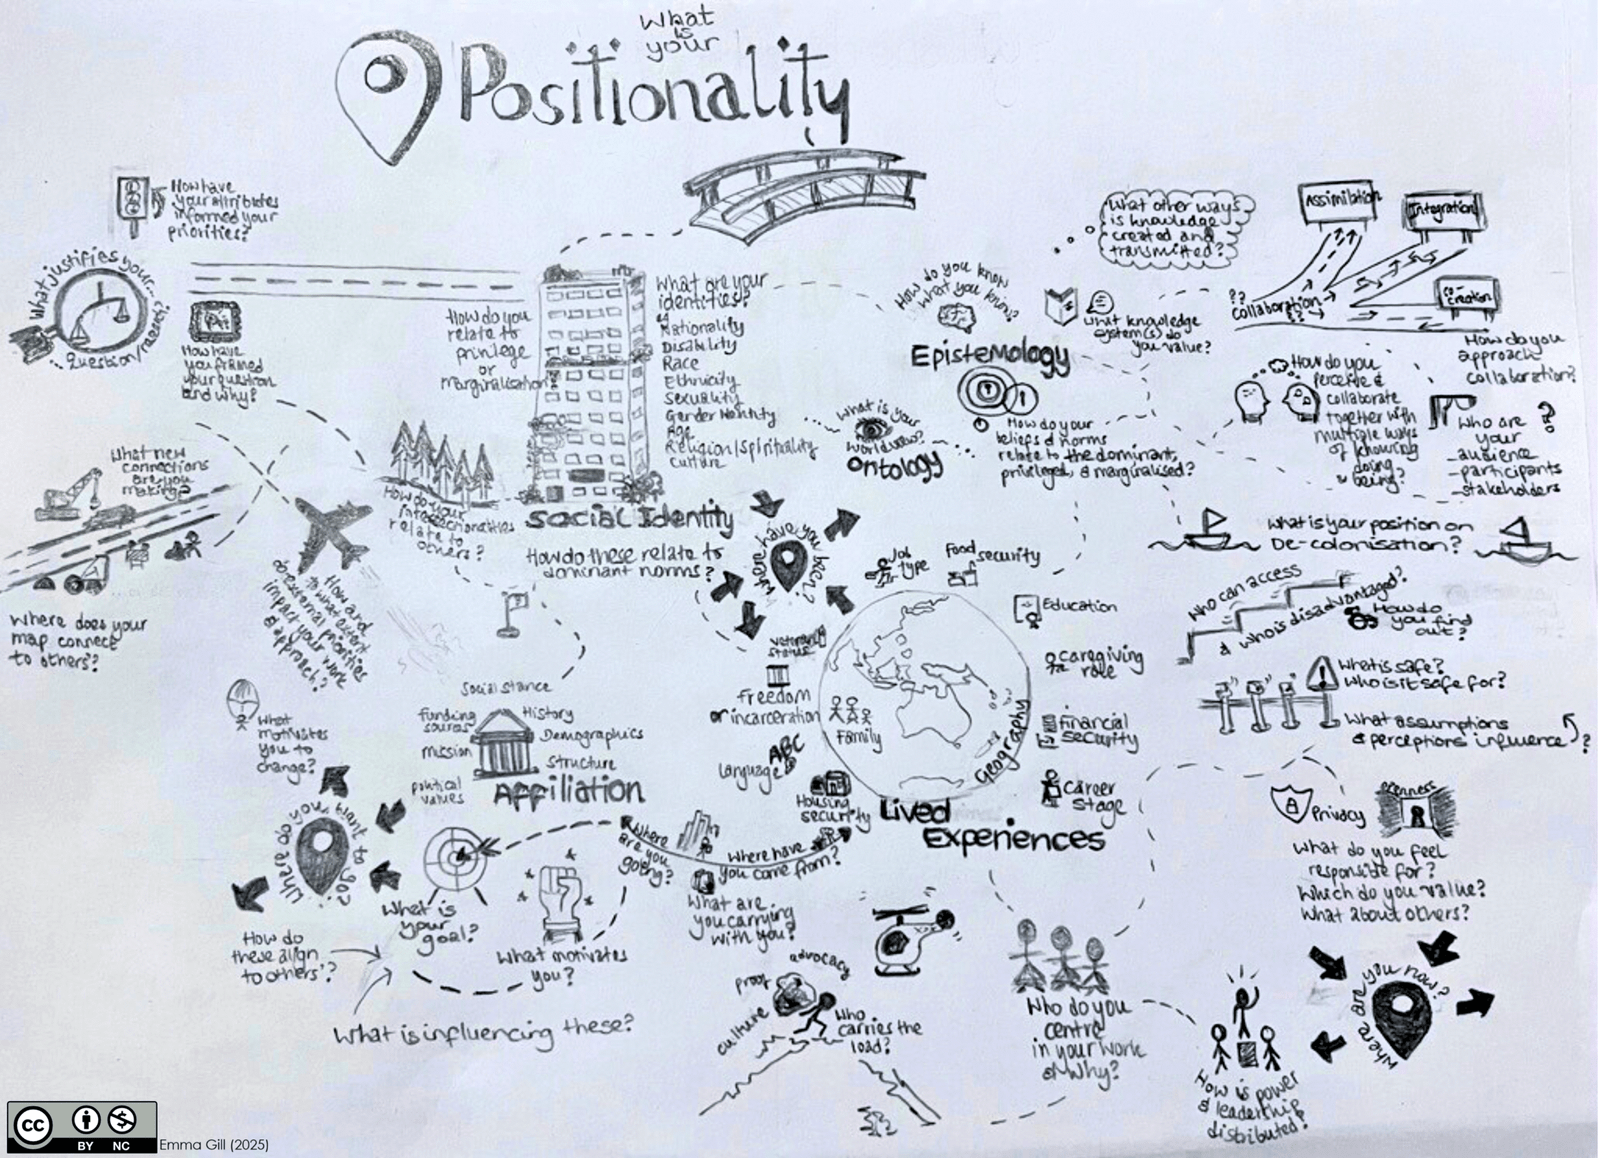 What
is
your
Positionality
How have
your attributes
informed your
priorities?
What justifies your...
Question/research?
Art
How have
you framed
your question
and why?
How do you
relate to
privilege
or
marginalisation?
What are your
identities?
Nationality
Disability
Race
Ethnicity
Sexuality
Gender Identity
Age
Religion/Spirituality
Culture
Social Identity
How do these relate to
dominant norms?
How do your
intersectionalities
relate to
others?
What new
connections
are you
making?
Where does your
map connect
to others'?
How and
to what extent
do external priorities
impact your work
& approach?
How do you know
what you know?
Epistemology
What is your
worldview?
Ontology
How do your
beliefs & norms
relate to the dominant,
privileged, & marginalised?
What other ways
is knowledge
created and
transmitted?
What knowledge
system(s) do
you value?
Assimilation
Integration
co-
creation
??
collaboration
??
How do you
approach
collaboration?
How do you
perceive &
collaborate
together with
multiple ways
of knowing
doing
& being?
Who are ?
your
- audience
- participants
- stakeholders
What is your position on
De-colonisation?
Who can access
& who is disadvantaged?
How do
you find
out?
What is safe?
Who is it safe for?
What assumptions
& perceptions influence ?
Privacy
openness
What do you feel
responsible for?
Which do you value?
What about others?
Where are you now?
How is power
& leadership
distributed?
Who do you
centre
in your work
& Why?
Where have you been?
Job
type
Food
security
Education
Caregiving
role
Financial
security
Career
Stage
Geography
Family
Veteran
status
Freedom
or incarceration
ABC
Language
Housing
security
Lived
Experiences
Where have
you come from?
Where
are you
going?
What are
you carrying
with you?
advocacy
proof
culture
Who
carries the
load?
Social stance
Funding
sources
History
Mission
Demographics
Structure
political
values
Affiliation
What
motivates
you to
change?
Where do you want to go?
What is
your
goal?
What motivates
you?
How do
these align
to others'?
What is influencing these?
cc
BY NC
Emma Gill (2025)